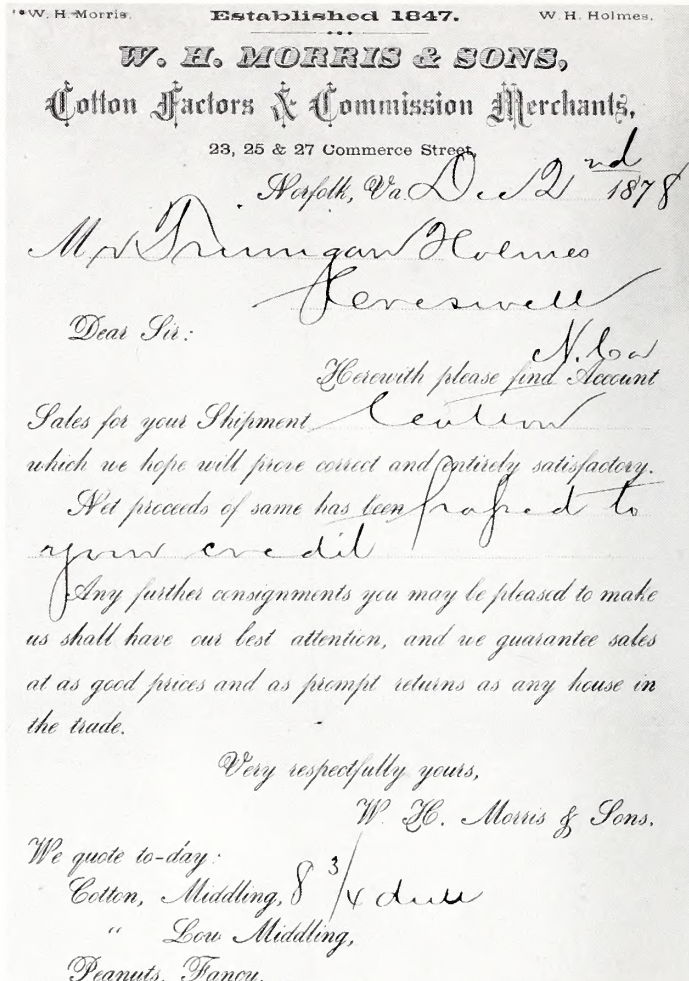 W. H. Morris. Established 1847. W. H. Holmes.
W. H. MORRIS & SONS,
Cotton Factors & Commission Merchants,
23, 25 & 27 Commerce Street,
Norfolk, Va. Dec 2nd 1878
Mr Holmes
Dear Sir:
N. Ca
Herewith please find Account
Sales for your Shipment Cotton
which we hope will prove correct and entirely satisfactory.
Net proceeds of same has been to
your credit
Any further consignments you may be pleased to make
us shall have our best attention, and we guarantee sales
at as good prices and as prompt returns as any house in
the trade.
Very respectfully yours,
W. H. Morris & Sons.
We quote to-day:
Cotton, Middling, 8 3/4 dull
" Low Middling,
Peanuts, Fancy,